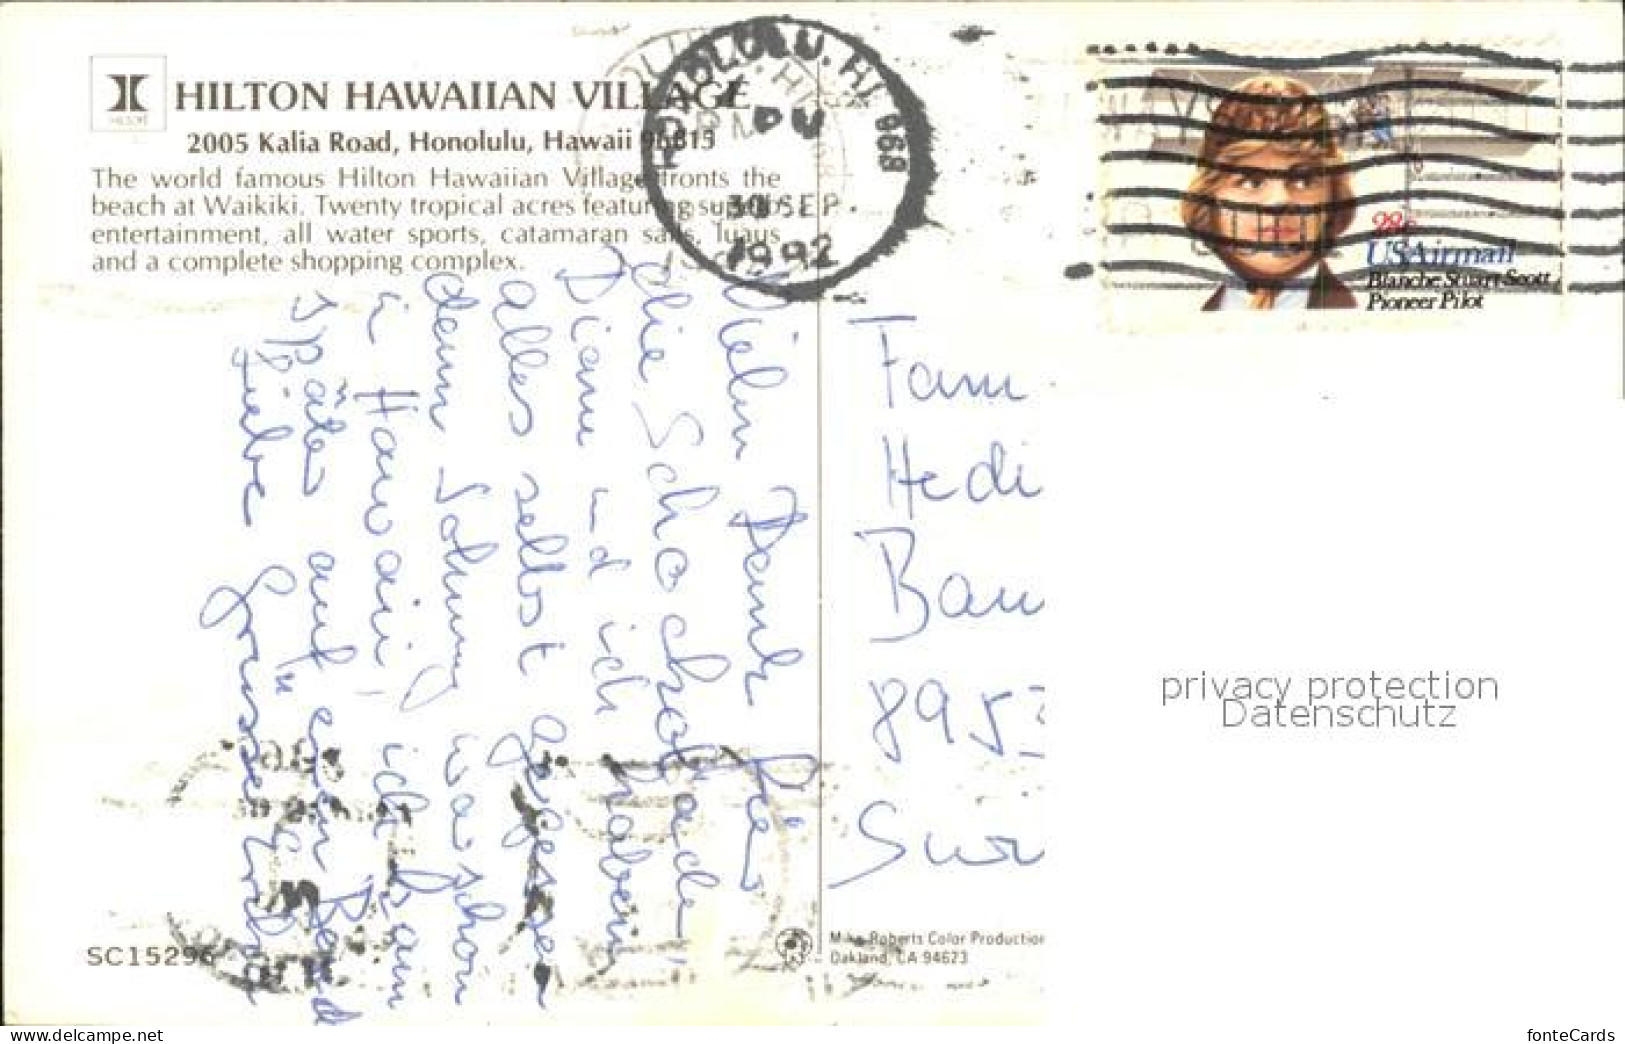 HILTON HAWAIIAN VILLAGE
HILTON
2005 Kalia Road, Honolulu, Hawaii 96815
The world famous Hilton Hawaiian Village fronts the
beach at Waikiki. Twenty tropical acres featuring superb
entertainment, all water sports, catamaran sails, luaus
and a complete shopping complex.
HONOLULU, HI 968
PM
30 SEP
1992
28c
USAirmail
Blanche Stuart Scott
Pioneer Pilot
Vielen Dank für
die Schocholade
Diane und ich haben
alles selbst gegessen
denn war schon
in Hawaii, ich kam
später auf einen Band
Liebe Grüsse
Fam.
Hedi
Bau
8953
SC15296
Mike Roberts Color Production
Oakland, CA 94623
privacy protection
Datenschutz
www.delcampe.net
fonteCards